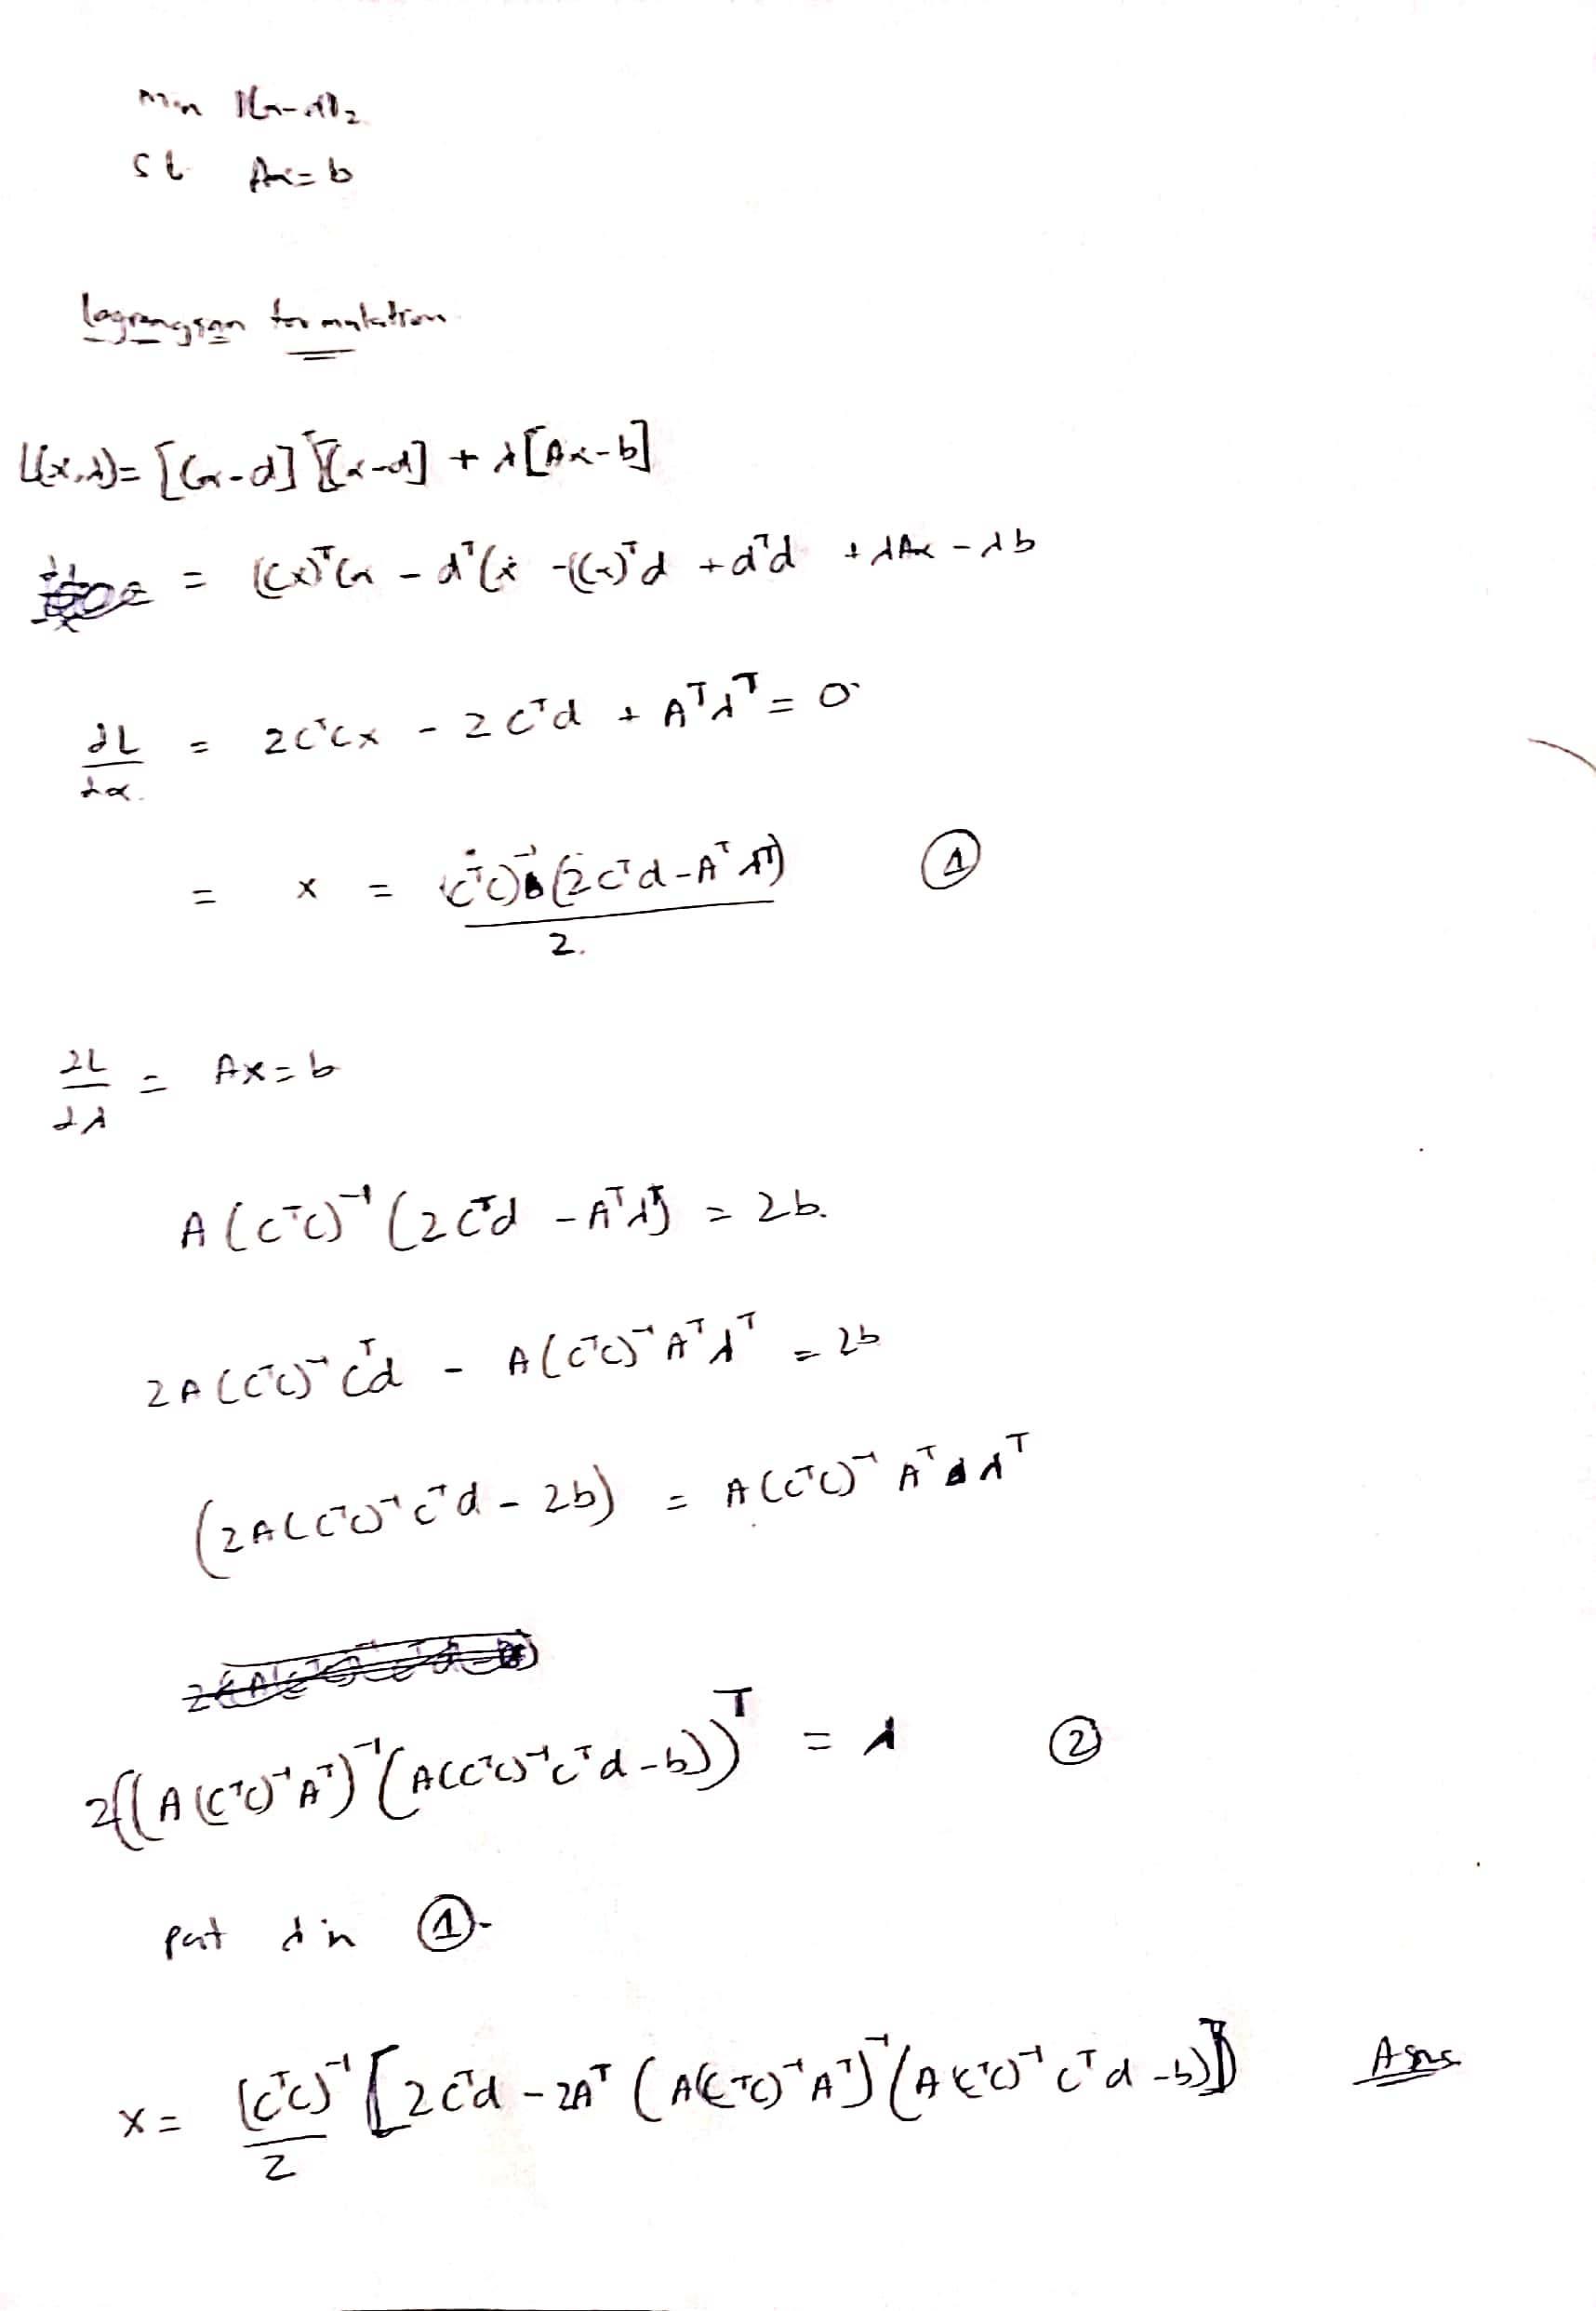 min ||Cx-d||₂
st Ax=b
lagrangian formulation
L(x,λ)= [Cx-d]ᵀ[Cx-d] + λ[Ax-b]
= (Cx)ᵀCx - dᵀCx - (Cx)ᵀd + dᵀd + λAx - λb
∂L/∂x = 2CᵀCx - 2Cᵀd + Aᵀλᵀ = 0
= x = (CᵀC)⁻¹(2Cᵀd - Aᵀλᵀ)/2. ①
∂L/∂λ = Ax=b
A(CᵀC)⁻¹(2Cᵀd - Aᵀλᵀ) = 2b.
2A(CᵀC)⁻¹Cᵀd - A(CᵀC)⁻¹Aᵀλᵀ = 2b
(2A(CᵀC)⁻¹Cᵀd - 2b) = A(CᵀC)⁻¹Aᵀλᵀ
2((A(CᵀC)⁻¹Aᵀ)⁻¹(A(CᵀC)⁻¹Cᵀd-b))ᵀ = λ ②
put λ in ①.
x = (CᵀC)⁻¹/2 [2Cᵀd - 2Aᵀ(A(CᵀC)⁻¹Aᵀ)⁻¹(A(CᵀC)⁻¹Cᵀd-b)] Asns